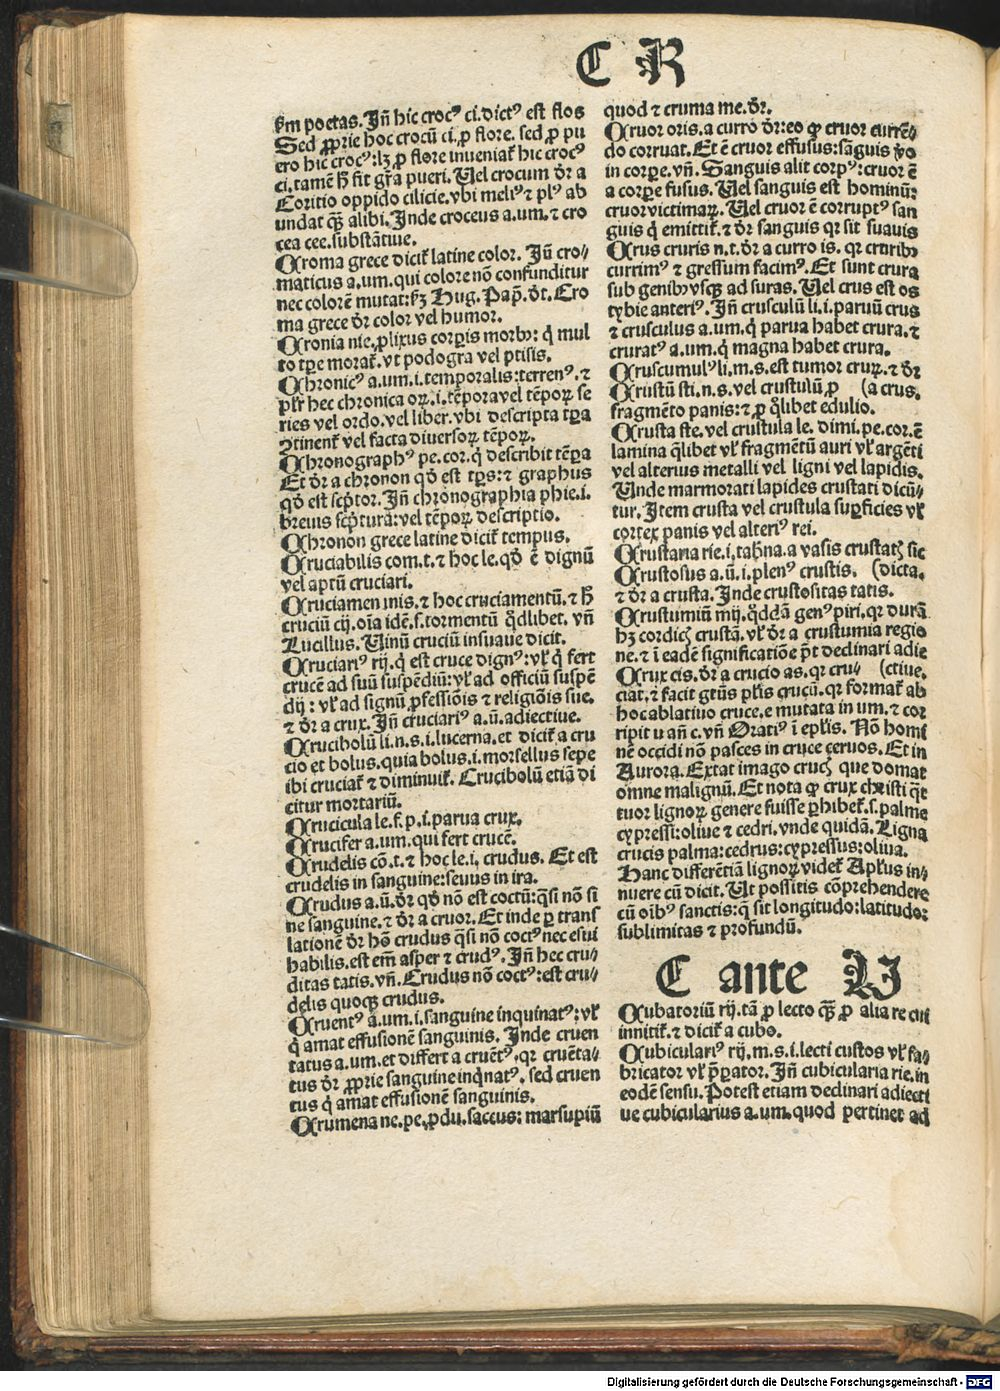 C R
ẜm poetas. Jñ hic crocꝰ ci. dictꝰ est flos
Sed ꝓprie hoc crocū ci. ꝓ flore. sed ꝓ pu
ero hic crocꝰ: lꝫ ꝓ flore inueniat᷑ hic crocꝰ
ci. tamē h̄ fit gr̄a pueri. Uel crocum dr̄ a
Coritio oppido cilicie. vbi meliꝰ ⁊ plꝰ ab
undat qꝫ̄ alibi. Jnde croceus a. um. ⁊ cro
cea cee. substātiue.
Croma grece dicit᷑ latine color. Jñ cro-
maticus a. um. qui colore nō confunditur
nec colorē mutat: ẜꝫ Hug. Pap̄. dr̄. Cro
ma grece dr̄ color vel humor.
Cronia nie. ꝓlixus corꝑis morbꝰ: q̇ mul
to tꝑe morat᷑. vt podogra vel ptisis.
Chronicꝰ a. um. i. temporalis: terrenꝰ. ⁊
plr̄ hec chronica oꝝ. i. tēpora vel tēpoꝝ se
ries vel ordo. vel liber. vbi descripta tꝑa
ꝯtinent᷑ vel facta diuersoꝝ tēpoꝝ.
Chronographꝰ pe. cor. q̇ describit tēpa
Et dr̄ a chronon qd̄ est tꝑs: ⁊ graphus
qd̄ est scp̄tor. Jñ chronographia phie. i.
breuis scp̄tura: vel tēpoꝝ descriptio.
Chronon grece latine dicit᷑ tempus.
Cruciabilis com. t. ⁊ hoc le. qd̄ ē dignū
vel aptū cruciari.
Cruciamen inis. ⁊ hoc cruciamentū. ⁊ h̄
cruciū cij. oīa idē. s. tormentū qd̄libet. vn̄
Lucillus. Uinū cruciū insuaue dicit.
Cruciariꝰ rij. q̇ est cruce dignꝰ: vl̓ q̇ fert
crucē ad suū suspēdiū: vl̓ ad officiū suspē
dij: vl̓ ad signū ꝓfessiōis ⁊ religiōis sue.
⁊ dr̄ a crux. Jñ cruciariꝰ a. ū. adiectiue.
Crucibolū li. n. s. i. lucerna. et dicit᷑ a cru
cio et bolus. quia bolus. i. morsellus sepe
ibi cruciat᷑ ⁊ diminuit᷑. Crucibolū etiā di
citur mortariū.
Crucicula le. f. p. i. parua crux.
Crucifer a. um. qui fert crucē.
Crudelis cō. t. ⁊ hoc le. i. crudus. Et est
crudelis in sanguine: seuus in ira.
Crudus a. ū. dr̄ qd̄ nō est coctū: q̄si nō si
ne sanguine. ⁊ dr̄ a cruor. Et inde ꝑ trans
lationē dr̄ hō crudus q̄si nō coctꝰ nec esui
habilis. est em̄ asper ⁊ crudꝰ. Jñ hec cru-
ditas tatis. vn̄. Crudus nō coctꝰ: est cru-
delis quoqꝫ crudus.
Cruentꝰ a. um. i. sanguine inquinatꝰ: vl̓
q̇ amat effusionē sanguinis. Jnde cruen
tatus a. um. et differt a cruētꝰ. qr cruēta-
tus dr̄ ꝓprie sanguine inq̇natꝰ. sed cruen
tus q̇ amat effusionē sanguinis.
Crumena ne. pe. ꝓdu. saccus: marsupiū
quod ⁊ cruma me. dr̄.
Cruor oris. a curro dr̄: eo ꝙ cruor currē-
do corruat. Et ē cruor effusus: sāguis v̊o
in corꝑe. vn̄. Sanguis alit corpꝰ: cruor ē
a corꝑe fusus. Uel sanguis est hominū:
cruor victimaꝝ. Uel cruor ē corruptꝰ san
guis q̇ emittit᷑. ⁊ dr̄ sanguis qr sit suauis
Crus cruris n. t. dr̄ a curro is. qr cruribꝰ
currimꝰ ⁊ gressum facimꝰ. Et sunt crura
sub genibꝰ vsqꝫ ad suras. Uel crus est os
tybie anteriꝰ. Jñ crusculū li. i. paruū crus
⁊ crusculus a. um. q̇ parua habet crura. ⁊
cruratꝰ a. um. q̇ magna habet crura.
Cruscumulꝰ li. m. s. est tumor cruꝝ. ⁊ dr̄
Crustū sti. n. s. vel crustulū ꝓ (a crus.
fragmēto panis: ⁊ ꝓ q̄libet edulio.
Crusta ste. vel crustula le. dimi. pe. cor. ē
lamina q̄libet vl̓ fragmētū auri vl̓ argēti
vel alterius metalli vel ligni vel lapidis.
Unde marmorati lapides crustati dicū-
tur. Jtem crusta vel crustula suꝑficies vl̓
cortex panis vel alteriꝰ rei.
Crustaria rie. i. tab̄na. a vasis crustatꝭ sic
Crustosus a. ū. i. plenꝰ crustis. (dicta.
⁊ dr̄ a crusta. Jnde crustositas tatis.
Crustumiū mij. qd̄dā genꝰ piri. qr durā
hꝫ cordicꝭ crustā. vl̓ dr̄ a crustumia regio
ne. ⁊ ī eadē significatiōe p̄t declinari adie
Crux cis. dr̄ a crucio as. qr cru- (ctiue.
ciat. ⁊ facit gtūs pl̓is crucū. qr format᷑ ab
hoc ablatiuo cruce. e mutata in um. ⁊ cor
ripit u an̄ c. vn̄ Oratiꝰ ī epl̓is. Nō homi
nē occidi nō pasces in cruce ceruos. Et in
Aurora. Extat imago crucꝭ que domat
omne malignū. Et nota ꝙ crux christi q̄t
tuor lignoꝝ genere fuisse ꝑhibet᷑. s. palme
cypressi: oliue ⁊ cedri. vnde quidā. Ligna
crucis palma: cedrus: cypressus: oliua.
Hanc differētiā lignoꝝ videt᷑ Apl̓us in-
nuere cū dicit. Ut possitis cōprehendere
cū oībꝰ sanctis: q̄ sit longitudo: latitudo:
sublimitas ⁊ profundū.
C ante U
Cubatoriū rij. tā ꝓ lecto qꝫ̄ ꝓ alia re cui
innitit᷑. ⁊ dicit᷑ a cubo.
Cubiculariꝰ rij. m. s. i. lecti custos vl̓ fa-
bricator vl̓ p̄ꝑator. Jñ cubicularia rie. in
eodē sensu. Potest etiam declinari adiecti
ue cubicularius a. um. quod pertinet ad
Digitalisierung gefördert durch die Deutsche Forschungsgemeinschaft - DFG